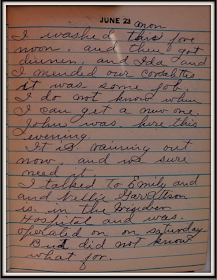 JUNE 23 mon
I washed this fore
noon. and then got
dinner, and Ida and
I mended our
it was some job.
I do not know when
I can get a new one.
John was here this
evening.
It is raining out
now, and we sure
need it
I talked to Emily and
and Nellie
is in the
Hospital and was
operated on on saturday
Bud did not know
what for.